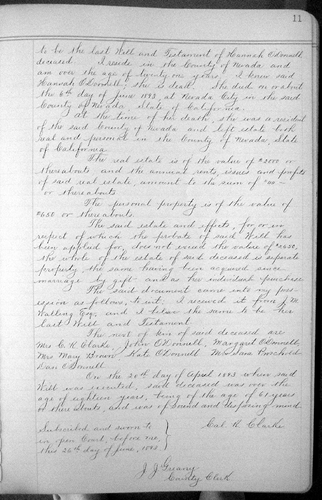 11
to be the last Will and Testament of Hannah O'Donnell
deceased. I reside in the County of Nevada and
am over the age of twenty one years, I knew said
Hannah O'Donnell, she is dead. She died on or about
the 6th day of June 1893 at Nevada City in the said
County of Nevada, State of California.
At the time of her death, she was a resident
of the said County of Nevada and left estate both
real and personal in the County of Nevada, State
of California.
The real estate is of the value of $2000 or
thereabouts and the annual rents, issues and profits
of said real estate amount to the sum of
or thereabouts.
The personal property is of the value of
$650 or thereabouts.
The said estate and effects, for or in
respect of which the probate of said Will has
been applied for, does not exceed the value of
the whole of the estate of said deceased is separate
property, the same having been acquired since
marriage by gift and as her individual purchase
The said document came into my poss-
ession as follows, to wit: I received it from J. M.
Walling Esq. and I believe the same to be her
last Will and Testament
The next of kin of said deceased are
Mrs C. K. Clarke, John O'Donnell, Margaret O'Donnell,
Mrs Mary Brown, Kate O'Donnell, Mrs Sara
Dan O'Donnell
On the 20th day of April 1893 when said
Will was executed, said deceased was over the
age of eighteen years, being of the age of 61 years
or thereabouts, and was of sound and disposing mind
Subscribed and sworn to
in open Court, before me,
this 26th day of June, 1893
Clarke
J. J. Greany
County Clerk